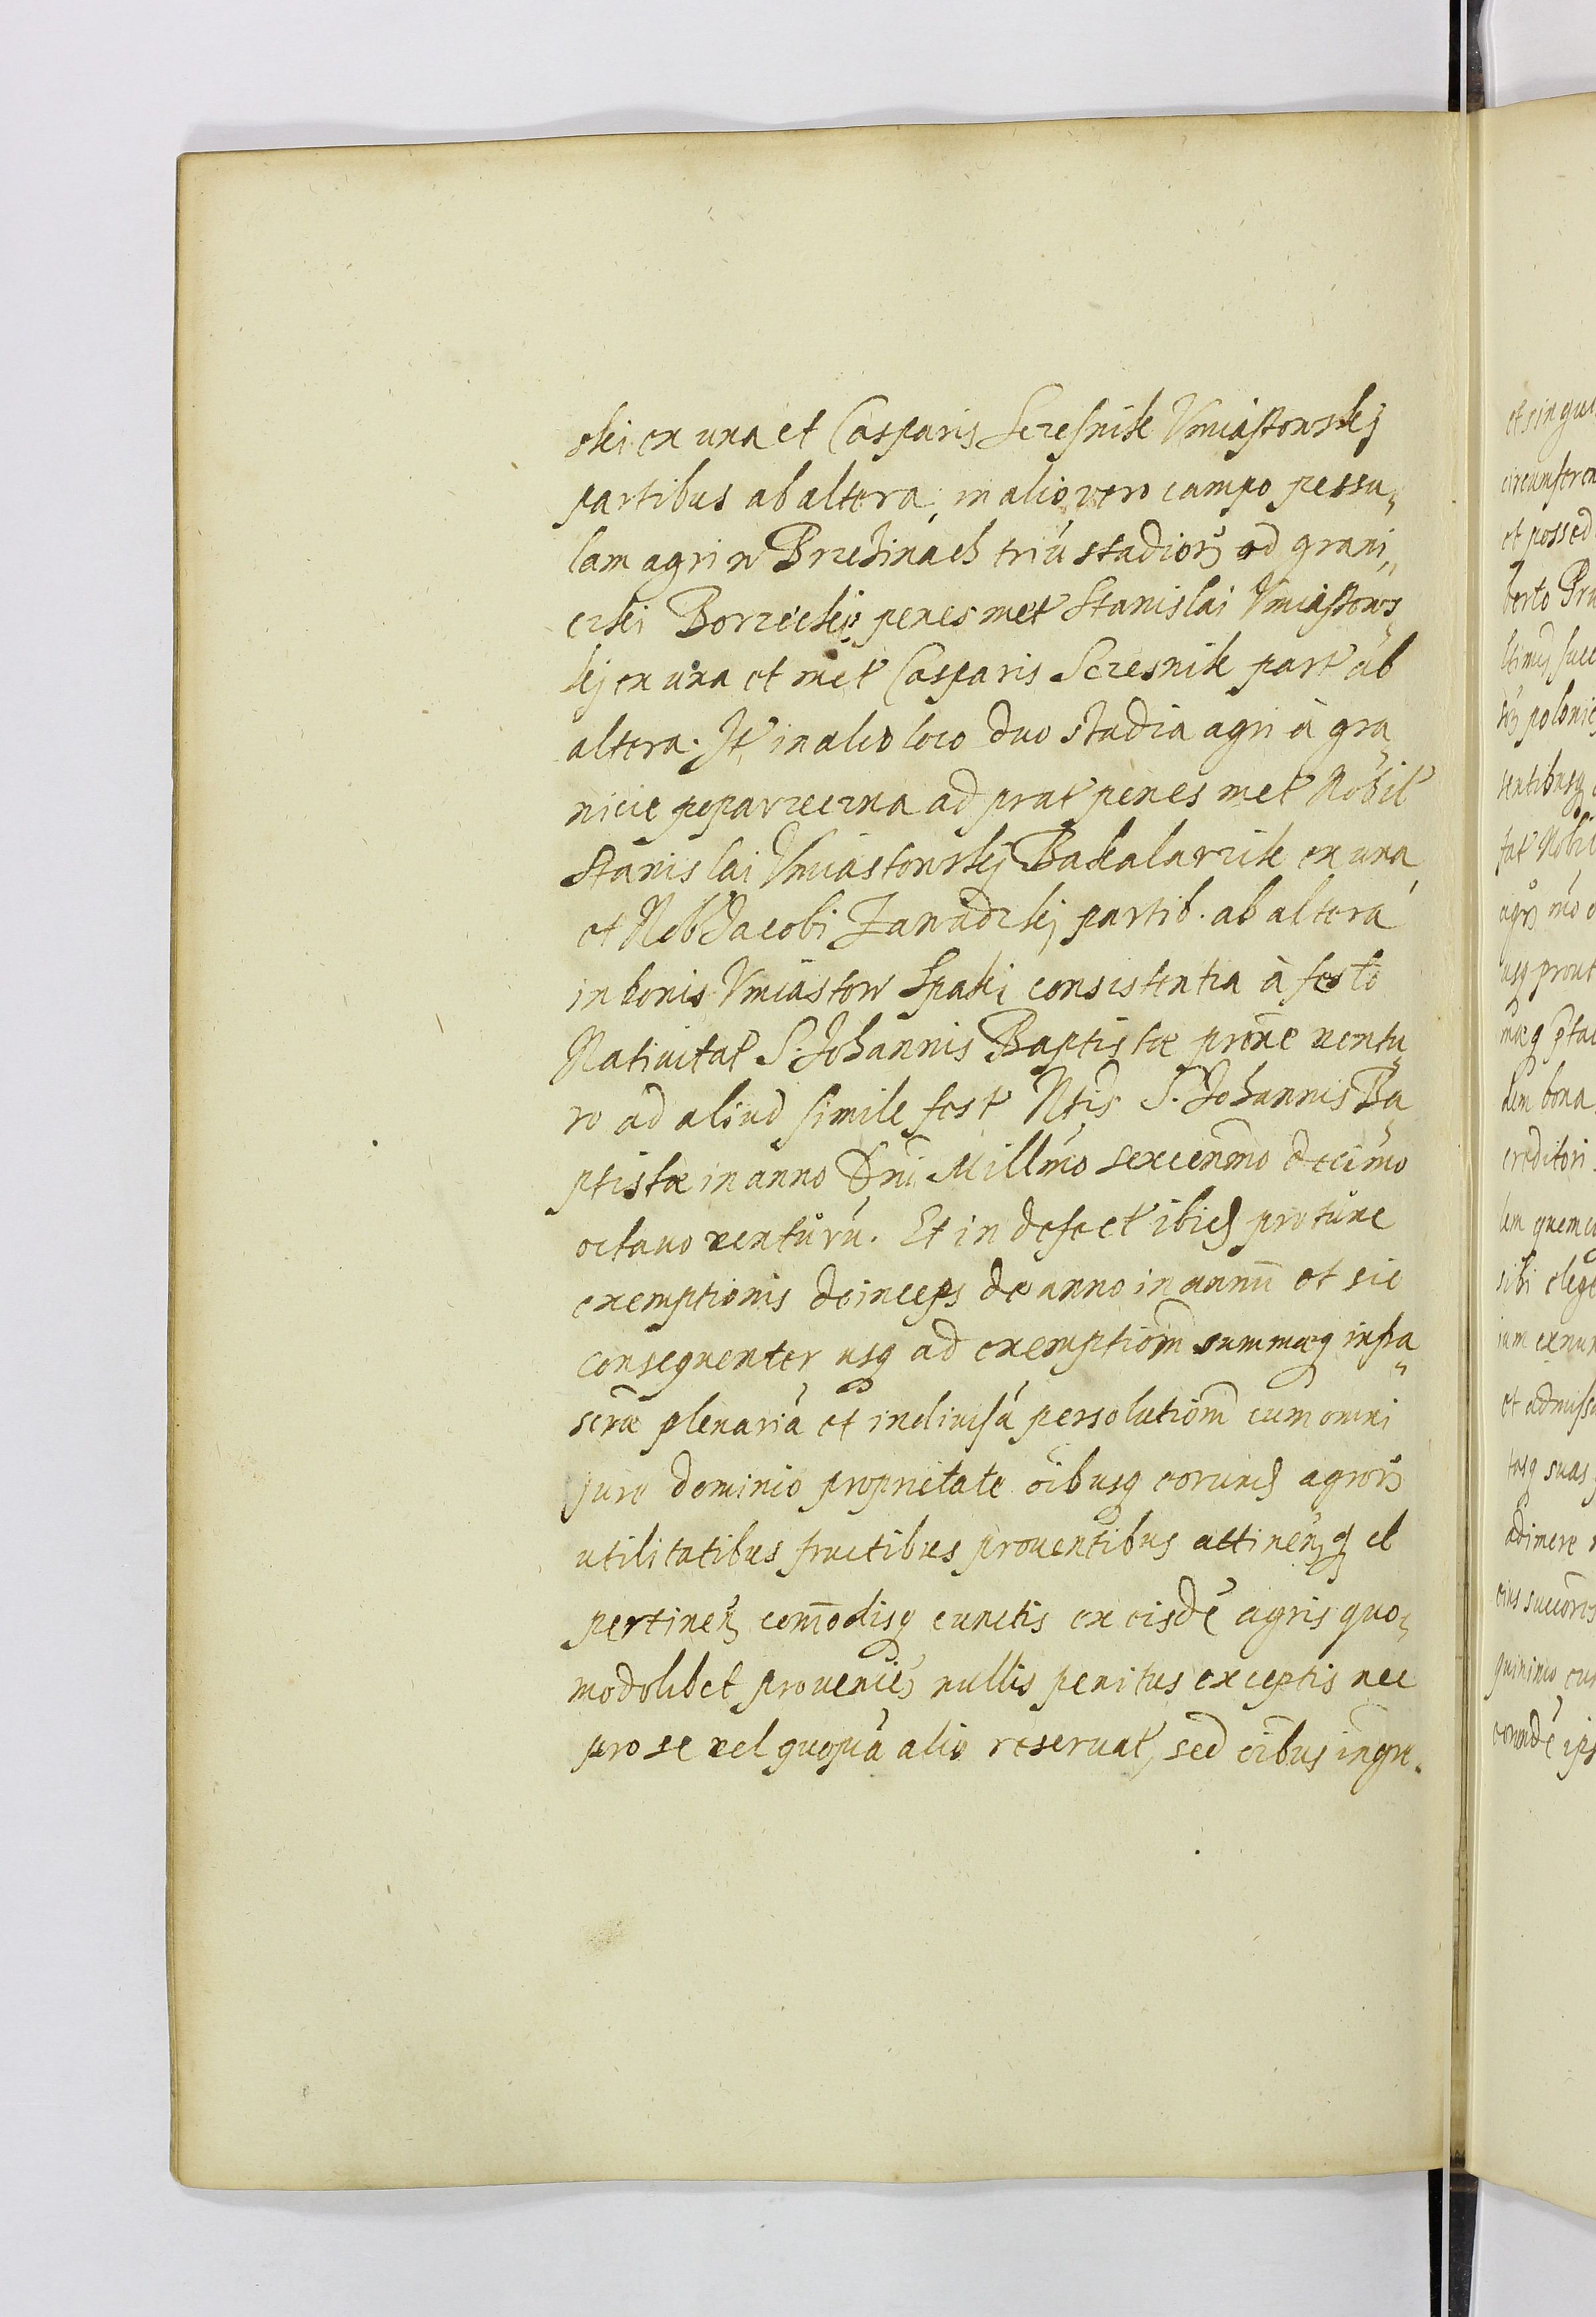 ski ex una et Casparis Sczesnik Vmiastowskij
partibus ab altera, in alio vero campo pessu„
lam agri w Brzezinach triu stadior ad grani„
czki Borzeckiej penes met Stanislai Vmiastows„
kij ex una et met Casparis Sczesnik part ab
altera. It in alio loco duo stadia agri à gra„
nicie poparzeczna ad prat penes met Nobil
Stanislai Vmiastowskij Bakalarzik ex una
et Nob Jacobi Zawadzkij partib. ab altera
in bonis Vmiastow Spaki consistentia à festo
Natiuitat S. Johannis Baptistæ proxe ventu„
ro ad aliud simile fest Ntis S. Johannis Ba„
ptistæ in anno Dni Millmo sexcenmo decimo
octauo venturu. Et in defect ibid pro tunc
exemptionis deinceps de anno in annu et sic
consequenter usq ad exemptiom summæq infra„
scræ plenariá et indiuisá persolutiom cum omni
jure dominio proprietate oibusq eorund agror
vtilitatibus fructibus prouentibus attinen q et
pertinen comodisq cunctis ex eisdé agris quo„
modolibet prouenie nullis penitus exceptis nec
pro se vel quopiá alio reseruat, sed oibus ingre.
et singul
circumferen
et possed
berto Pru
ltimis succ
polonic
tentibusq
fat Nobil
agr mo
usq prout
dem bona
creditori
lem quemcu
sibi elege
iam exnun
et admiss
tosq suas
adimere
eius succor
quinimo cu
eorundé ips